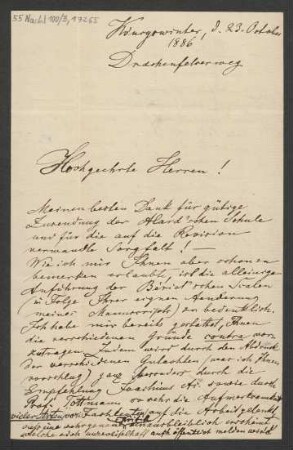 55 Nachl 100/B,
Königswinter, d. 23. October
1886
Drachenfelserweg
Hochgeehrte Herren!
Meinen besten Dank für gütige
Zusendung der Alard'schen Schule
und für die auf die Revision
verwandte Sorgfalt! —
Wie ich mir Ihnen aber schon zu
bemerken erlaubt, ist die alleinige
Anführung der Bériot'schen Scalen
(in Folge Ihrer eignen Aenderung
meines Manuscripts) bedenklich.
Ich habe mir bereits gestattet, Ihnen
die verschiedenen Gründe contra vor-
zutragen. Zudem wird durch den Abdruck
der verschiedenen Gutachten (wie ich Ihnen
vorschlug) ganz besonders durch die
Empfehlung Joachims sowie durch
Prof. Tottmann die Aufmerksamkeit
vieler Fachleute auf die Arbeit gelenkt,